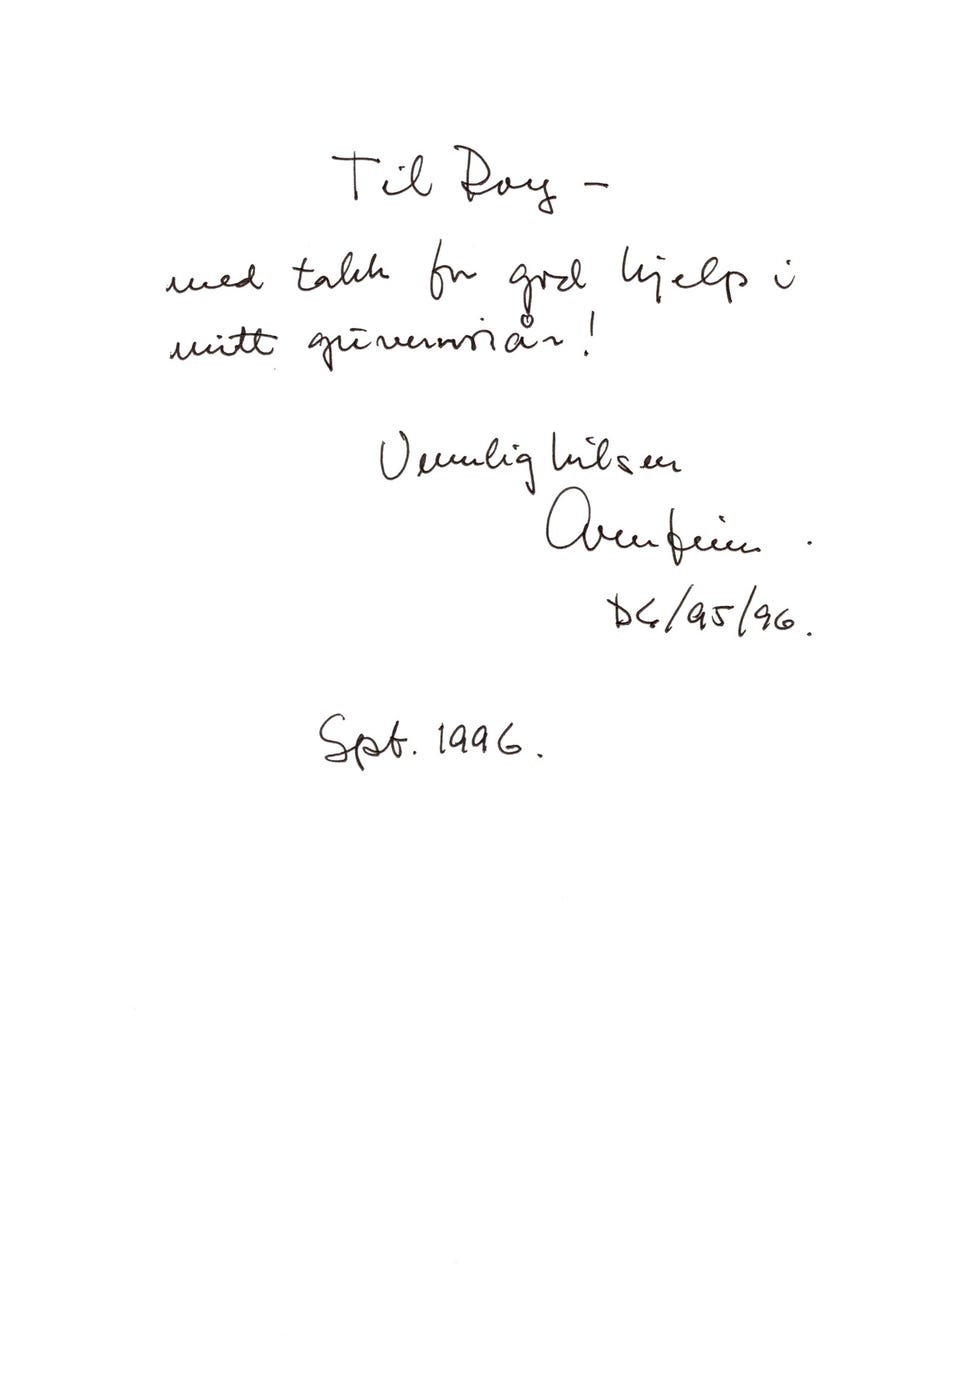 Til Roy –
med takk for god hjelp i
mitt guvernørår!
Vennlig hilsen
DG/95/96.
Spt. 1996.